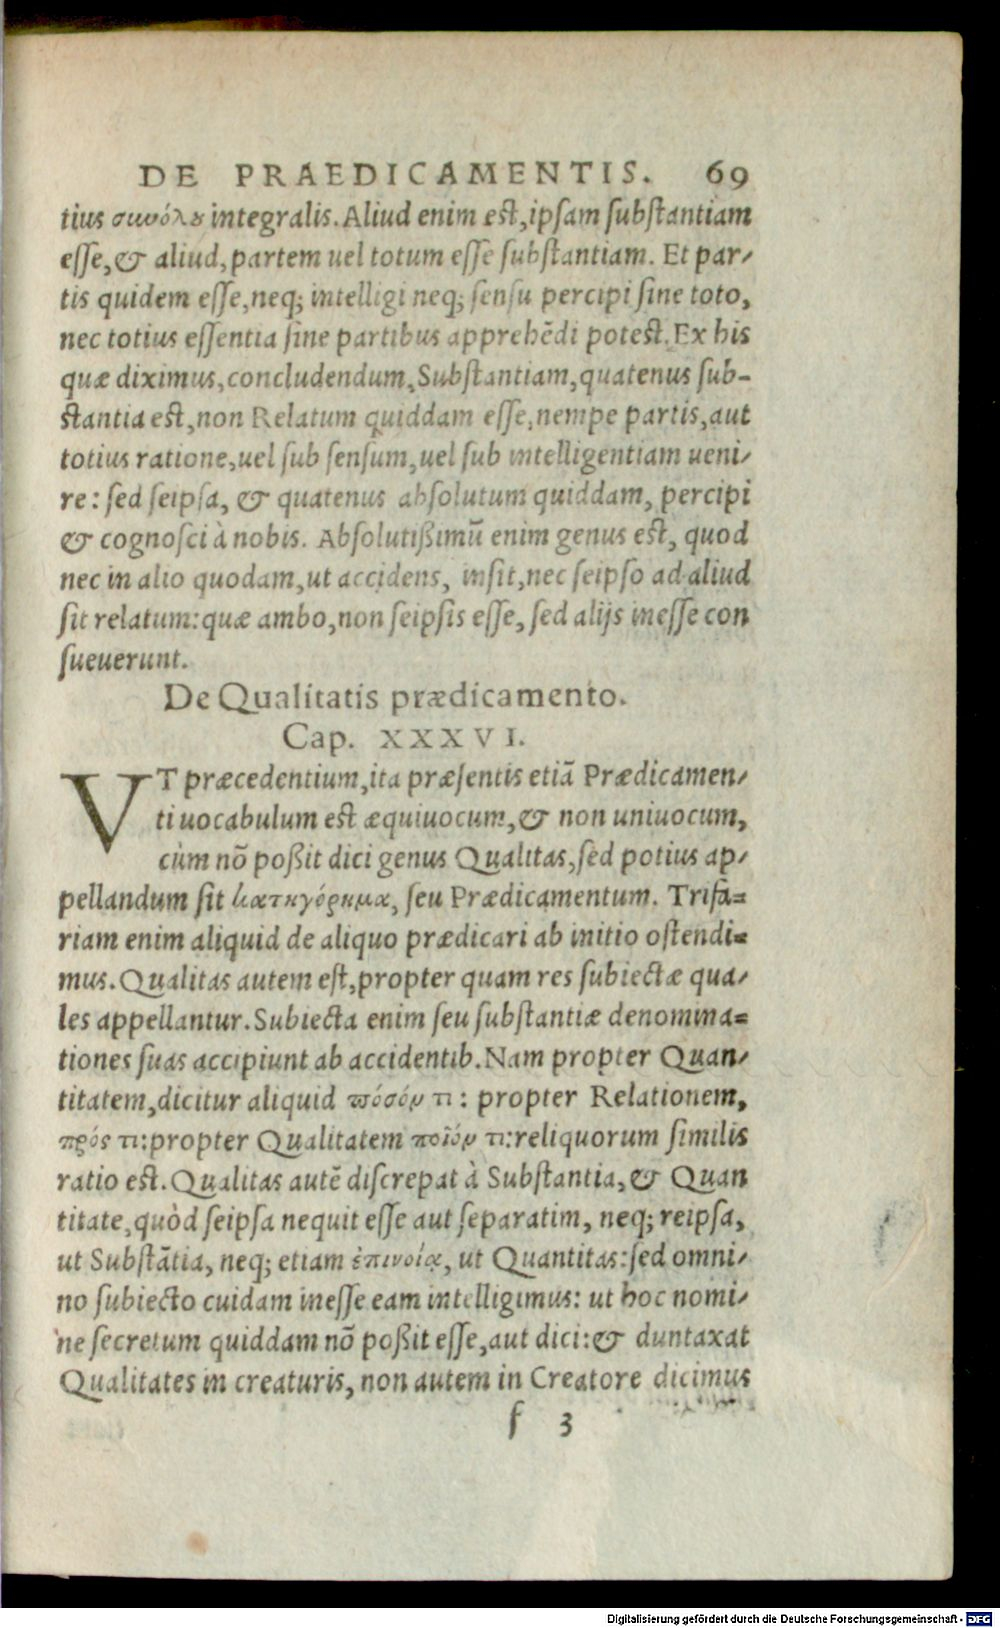 DE PRAEDICAMENTIS. 69
tius σωόλȣ integralis. Aliud enim est, ipsam substantiam
esse, & aliud, partem uel totum esse substantiam. Et par-
tis quidem esse, neq; intelligi neq; sensu percipi sine toto,
nec totius essentia sine partibus apprehẽdi potest. Ex his
quæ diximus, concludendum, Substantiam, quatenus sub-
stantia est, non Relatum quiddam esse, nempe partis, aut
totius ratione, uel sub sensum, uel sub intelligentiam ueni-
re: sed seipsa, & quatenus absolutum quiddam, percipi
& cognosci à nobis. Absolutißimũ enim genus est, quod
nec in alio quodam, ut accidens, insit, nec seipso ad aliud
sit relatum: quæ ambo, non seipsis esse, sed alijs inesse con
sueuerunt.
De Qualitatis prædicamento.
Cap. XXXVI.
VT præcedentium, ita præsentis etiã Prædicamen-
ti uocabulum est æquiuocum, & non uniuocum,
cùm nõ poßit dici genus Qualitas, sed potius ap-
pellandum sit κατηγόρημα, seu Prædicamentum. Trifa-
riam enim aliquid de aliquo prædicari ab initio ostendi-
mus. Qualitas autem est, propter quam res subiectæ qua-
les appellantur. Subiecta enim seu substantiæ denomina-
tiones suas accipiunt ab accidentib. Nam propter Quan-
titatem, dicitur aliquid πόσόν τι: propter Relationem,
πρός τι: propter Qualitatem ποῖόν τι: reliquorum similis
ratio est. Qualitas autẽ discrepat à Substantia, & Quan
titate, quòd seipsa nequit esse aut separatim, neq; reipsa,
ut Substãtia, neq; etiam ἐπινοίᾳ, ut Quantitas: sed omni-
no subiecto cuidam inesse eam intelligimus: ut hoc nomi-
ne secretum quiddam nõ poßit esse, aut dici: & duntaxat
Qualitates in creaturis, non autem in Creatore dicimus
f 3
Digitalisierung gefördert durch die Deutsche Forschungsgemeinschaft - DFG